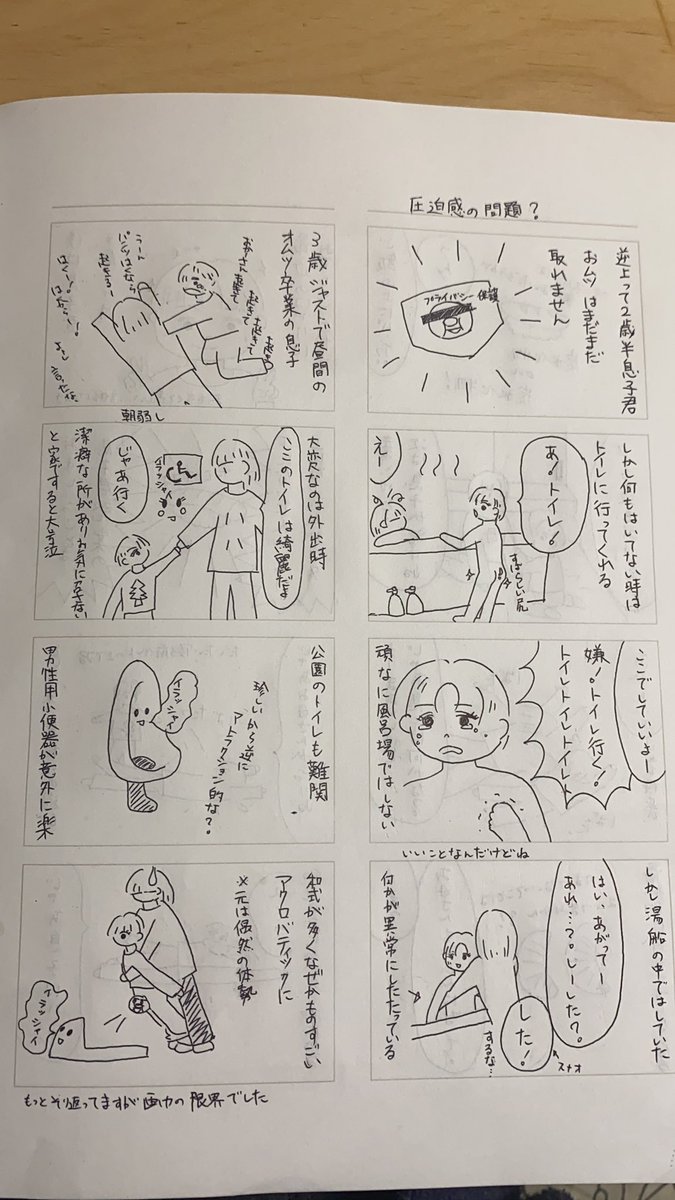 圧迫感の問題?
逆上って2歳半息子君
おムツはまだまだ
取れません
プライバシー保護
しかし何もはいてない時は
トイレに行ってくれる
あ!トイレ!
えー
すばらしい尻
ここでしていいよー
嫌!トイレ行く!
トイレトイレトイレト
頑なに風呂場ではしない
いいことなんだけどね
しかし湯船の中ではしていた
はい、あがってー
あれ…?しーした?
した!
スナオ
するな…
何かが異常にしたたっている
3歳ジャストで昼間の
オムツ卒業の息子
おかーさん起きて
起きて
起きて
うーん
パンツはくなら
起きるー
はくー!
朝弱し
大変なのは外出時
ここのトイレは綺麗だよ
イラッシャイ
じゃあ行く
潔癖な所がありお気に召さない
と家ですると大号泣
公園のトイレも難関
珍しいから逆に
アトラクション的な?
イラッシャイ
男性用小便器が意外に楽
和式が多くなぜかものすごい
アクロバティックに
※元は偶然の体勢
イラッシャイ
もっとそり返ってますが画力の限界でした